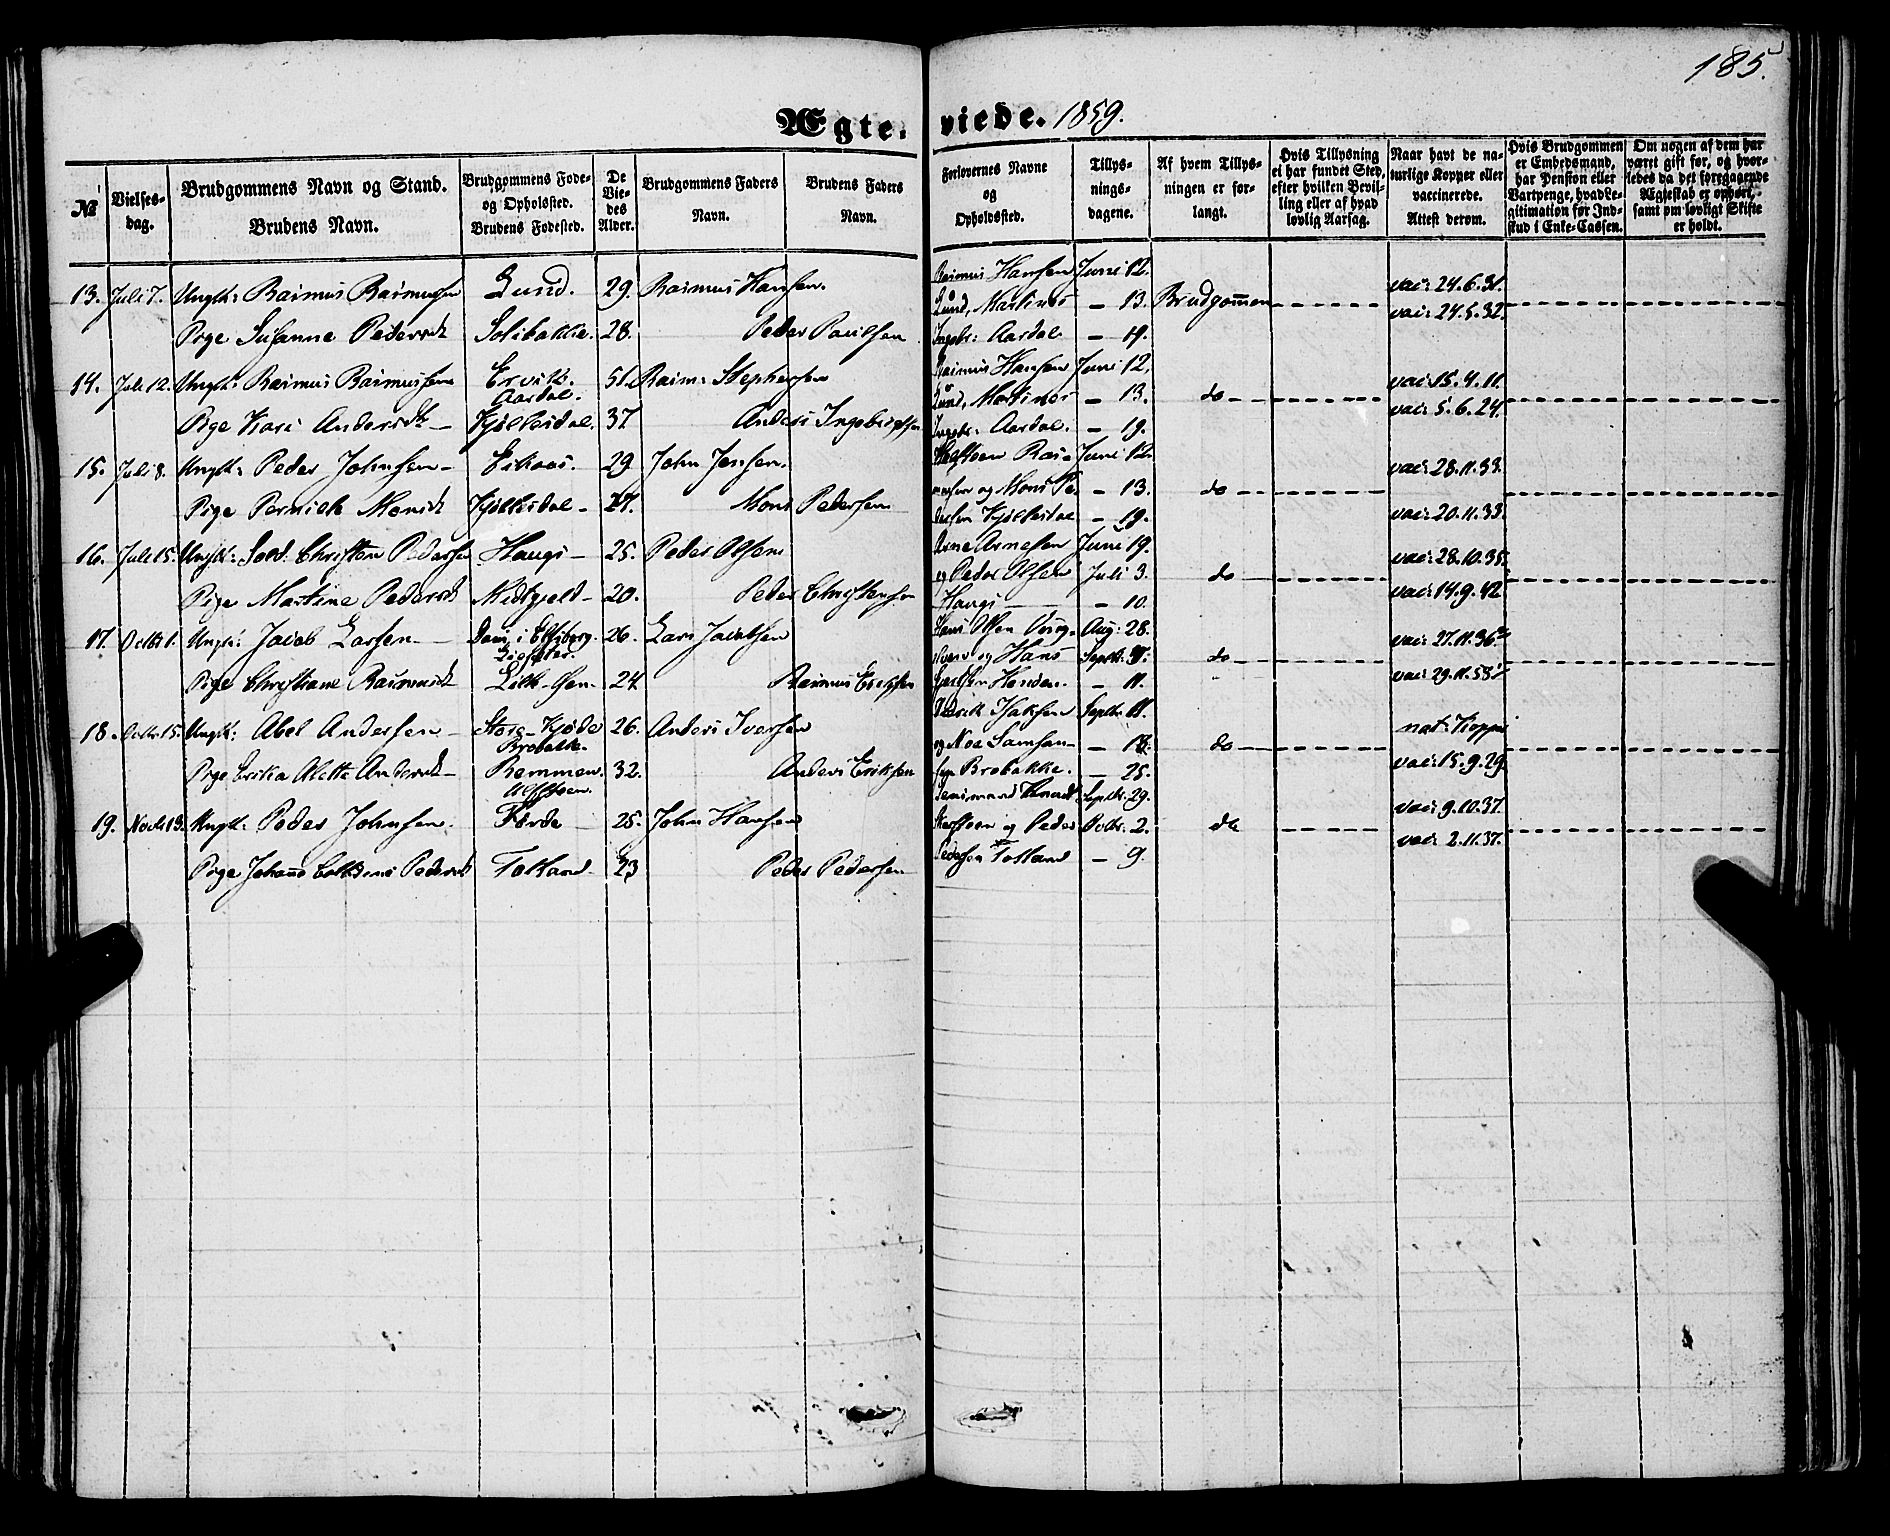 185.
Ægte-viede. 1859.
№
Vielses-dag.
Brudgommens Navn og Stand.
Brudens Navn.
Brudgommens Føde- og Opholdssted.
Brudens Fødested.
De Vie-des Alder.
Brudgommens Faders Navn.
Brudens Faders Navn.
Forlovernes Navne og Opholdssted.
Tillys-nings-dagene.
Af hvem Tillys-ningen er for-langt.
Hvis Tillysning ei har fundet Sted, efter hvilken Bevil-ling eller af hvad lovlig Aarsag.
Naar havt de na-turlige Kopper eller vaccinerede. Attest derom.
Hvis Brudgommen er Embedsmand, har Pension eller Vartpenge, hvad Le-gitimation for Ind-skud i Enke-Cassen.
Om nogen af dem har været gift før, og hvor-ledes da det foregagende Ægteskab er ophørt, samt om lovligt Skifte er holdt.
13. Juli 7. Ungk: Rasmus Rasmussen Lund. 29. Rasmus Hansen. Rasmus Hansen Juni 12. vac: 24.6.31.
Lund, Martinus — 13. Brudgommen vac: 24.5.32.
Pige Susanne Pedersdt 28. Peder Paulsen Ingebr: Aardal — 19.
14. Juli 12. Ungk: Rasmus Rasmussen Ervik. Aardal. 51. Rasm: Stephensen Rasmus Hansen Juni 12. vac: 15.4.11.
Lund, Martinus — 13. do vac: 5.6.24.
Pige Kari Andersdt Kjølkesdal. 37 Anders Ingebrigtsen Ingebr: Aardal. — 19.
15. Juli 8. Ungk: Peder Johnsen Eikaas. 29 John Jensen. Juni 12. vac: 28.11.33.
og Mons Pe — 13. do
Pige Pernille Monsdt Kjølkesdal 27. Mons Pedersen dersen Kjølkesdal — 19. vac: 20.11.33.
16. Juli 15. Ungk: Sold. Christen Pedersen Haugs 25. Peder Olsen Arne Arnesen Juni 19. vac: 28.10.35.
og Peder Olsen Juli 3. do
Pige Martine Pedersdt Midtgjeld 20. Peder Christensen Haugs — 10. vac: 14.9.42.
17. Octbr 1. Ungk: Jacob Larsen 26. Lars Jacobsen Hans Olsen Aug: 28. vac: 27.11.36
og Hans Septbr: do
Pige Christiane Rasmusdt 24 Rasmus Eriksen Henden. — 11. vac: 29.11.
18. Octbr. 15. Ungk: Abel Andersen Brobakke. 26. Anders Iversen Isaksen Septbr: 11. nat: Kopper
og Noe Samson — 18. do
Pige Erika Alette Andersdt Remmen. 32. Anders Eriksen sen Brobakke. — 25. vac: 15.9.29.
19. Novbr 13. Ungk: Peder Johnsen. Førde 25. John Hansen Septbr. 29. vac: 9.10.37.
og Peder Octbr: 2. do vac: 2.11.37.
Pige Johanne Pedersdt Totland 23 Peder Pedersen Pedersen Totland — 9.